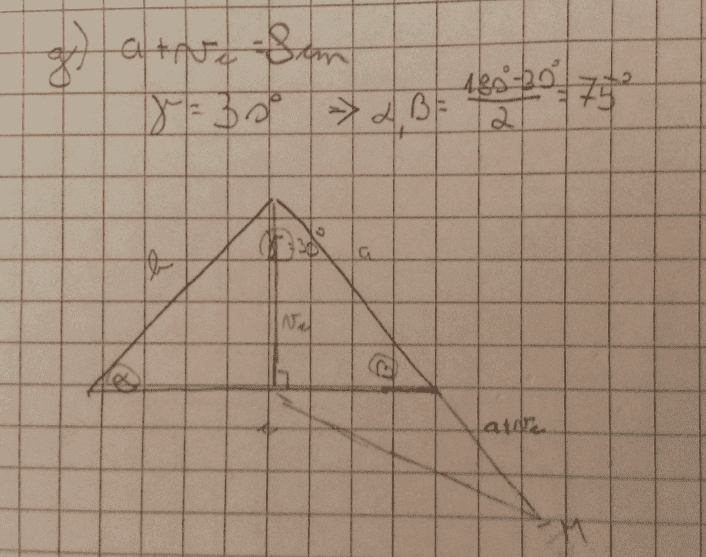 g) a+vc = 8cm
γ = 30° ⇒ α, β = 180°-30° / 2 = 75°
γ=30°
b
a
vc
α
β
c
a+vc
M